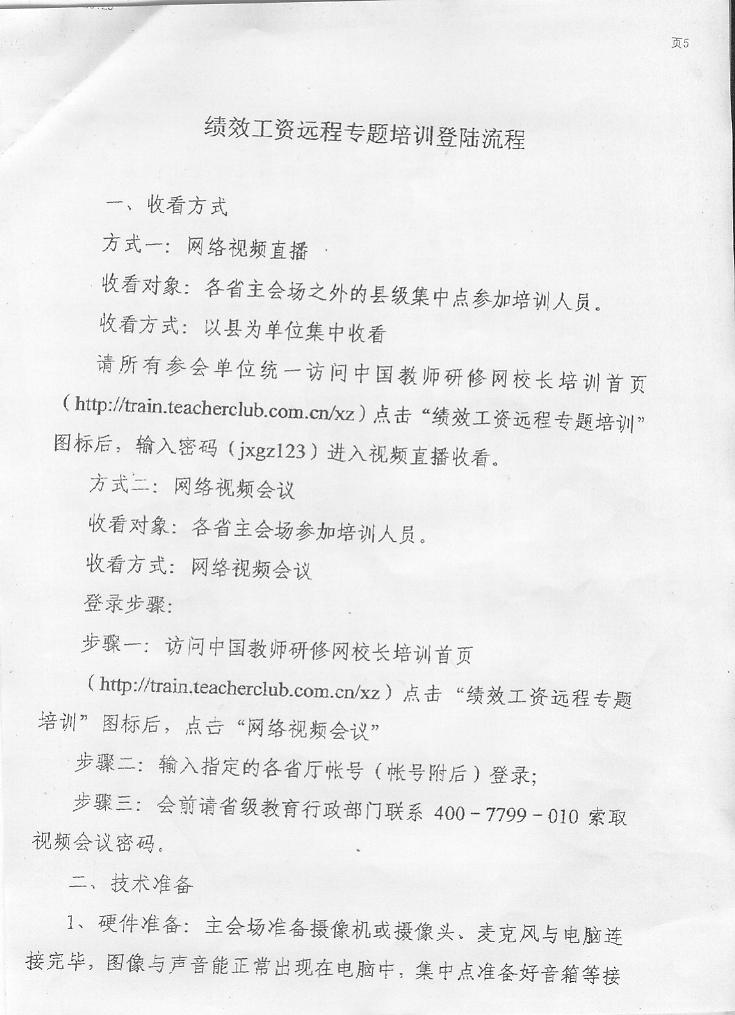 页5
绩效工资远程专题培训登陆流程
一、收看方式
方式一：网络视频直播
收看对象：各省主会场之外的县级集中点参加培训人员。
收看方式：以县为单位集中收看
请所有参会单位统一访问中国教师研修网校长培训首页
（http://train.teacherclub.com.cn/xz）点击“绩效工资远程专题培训”
图标后，输入密码（jxgz123）进入视频直播收看。
方式二：网络视频会议
收看对象：各省主会场参加培训人员。
收看方式：网络视频会议
登录步骤：
步骤一：访问中国教师研修网校长培训首页
（http://train.teacherclub.com.cn/xz）点击“绩效工资远程专题
培训”图标后，点击“网络视频会议”
步骤二：输入指定的各省厅帐号（帐号附后）登录；
步骤三：会前请省级教育行政部门联系 400－7799－010 索取
视频会议密码。
二、技术准备
1、硬件准备：主会场准备摄像机或摄像头、麦克风与电脑连
接完毕，图像与声音能正常出现在电脑中，集中点准备好音箱等接